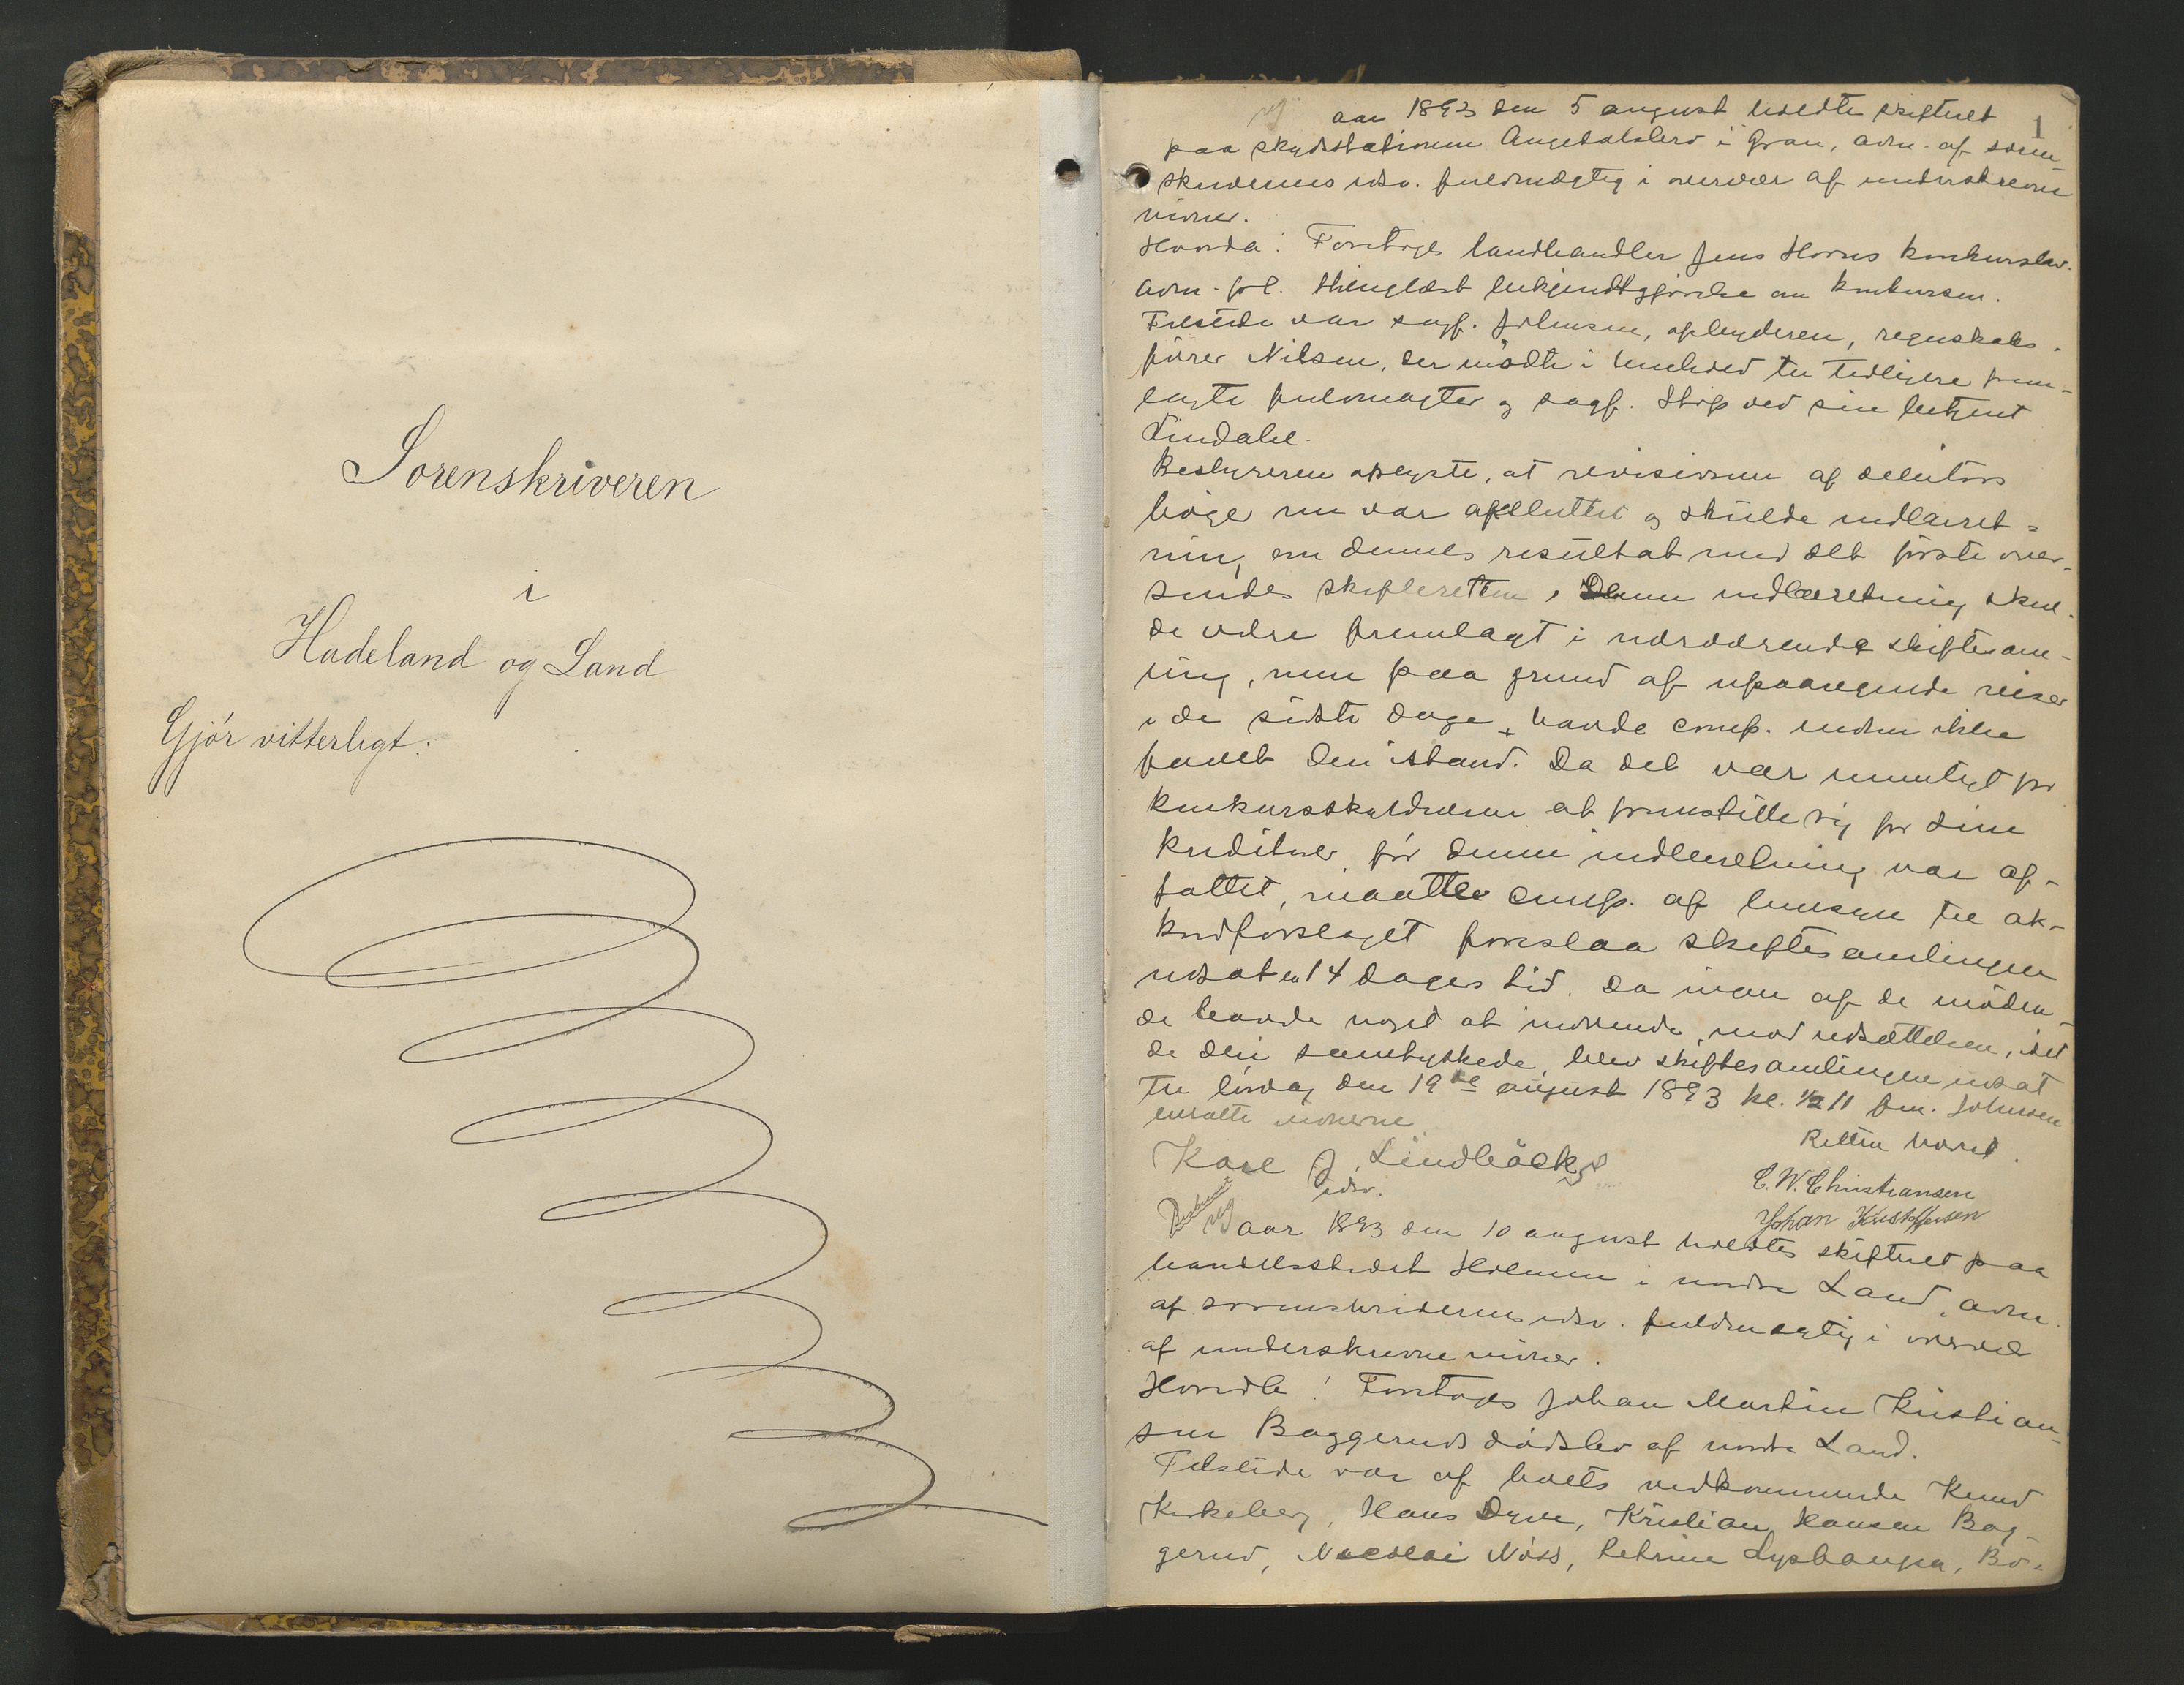 Sorenskriveren
i
Hadeland og Land
Gjör vitterligt:
1
aar 1893 den 5 august holdtes skifteret
paa skydsstationen i Gran, adm. af soren-
skriverens edsv. fuldmægtig i overvær af underskrevne
vidner.
Hvorda: Foretoges landhandler Jens Hovs konkursbo.
adm. fol. thinglæst bekjendtgjörelse om konkursen.
Tilstede var sagf. Johnsen, opbyderen, regnskabs-
förer Nilsen, der mödte i henhold til tidligere frem-
lagte fuldmagter og sagf. ved sin betjent
Lindahl.
Bestyreren oplyste, at revisionen af debitors
böger nu var afsluttet og skulde indberet-
ning om dennes resultat med det förste over-
sendes skifteretten. Denne indberetning skul-
de være fremlagt i nærværende skiftesam-
ling, men paa grund af upaaregnede reiser
i de sidste dage havde comp. endnu ikke
faaet den istand. Da det var umuligt for
konkursskyldneren at fremstille sig for sine
kreditorer för denne indberetning var af-
fattet, maatte comp. af hensyn til ak-
kordforslaget foreslaa skiftesamlingen
udsat en 14 dages tid. Da ingen af de möden-
de havde noget at indvende mod udsættelsen, idet
de deri samtykkede, blev skiftesamlingen udsat
til lördag den 19de august 1893 kl. ½ 11 fm. Johnsen
ersatte vidnerne.
Retten hævet.
Karl J. Lindbäck
edsv.
C. W. Christiansen
Johan Kristoffersen
aar 1893 den 10 august holdtes skifteret paa
handelsstedet Holmen i nordre Land, adm.
af sorenskriverens edsv. fuldmægtig i overvær
af underskrevne vidner.
Hvorda! Foretoges Johan Martin Kristian-
sen Baggeruds dödsbo af nordre Land.
Tilstede var af boets vedkommende Knud
Kirkeberg, Hans Dyve, Kristian Hansen Bag-
gerud, Nicolai Nöss, Bö-